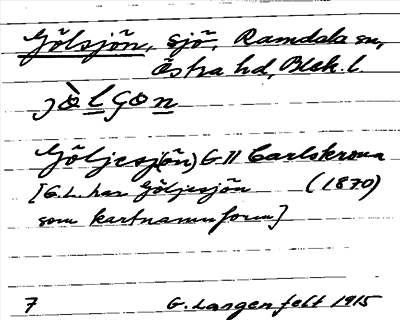 Gölsjön, sjö, Ramdala sn,
Östra hd, Blek. l.
Göljesj(ön) G II Carlskrona
[G.L. har Göljesjön (1870)
som kartnamnform]
7 G. Langenfelt 1915